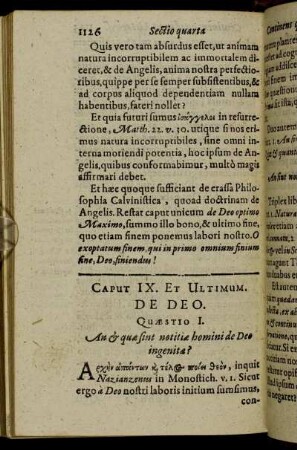 1126 Sectio quarta
Quis vero tam absurdus esset, ut animam
natura incorruptibilem ac immortalem di
ceret, & de Angelis, anima nostra perfectio-
ribus, quippe per se semper subsistentibus, &
ad corpus aliquod dependentiam nullam
habentibus, fateri nollet?
Et quia futuri sumus ἰσάγγελοι in resurre-
ctione, Matth. 22. v. 30. utique si nos erimus
natura incorruptibiles, sine omni in-
terna moriendi potentia, hoc ipsum de An-
gelis, quibus conformabimur, multò magis
affirmari debet.
Et hæc quoque sufficiant de crassa Philo-
sophia Calvinistica, quoad doctrinam de
Angelis. Restat caput unicum de Deo optimo
Maximo, summo illo bono, & ultimo fine,
quo etiam finem ponemus labori nostro. O
exoptatum finem, qui in primo omnium finium
fine, Deo, finiendus!
CAPUT IX. ET ULTIMUM.
DE DEO.
QUÆSTIO I.
An & quæ sint notitiæ homini de Deo
ingenitæ?
Ἀρχὴν ἁπάντων κὶ τέλος ποίει Θεὸν, inquit
Nazianzenus in Monostich. v. 1. Sicut
ergo à Deo nostri laboris initium sumsimus,
con-